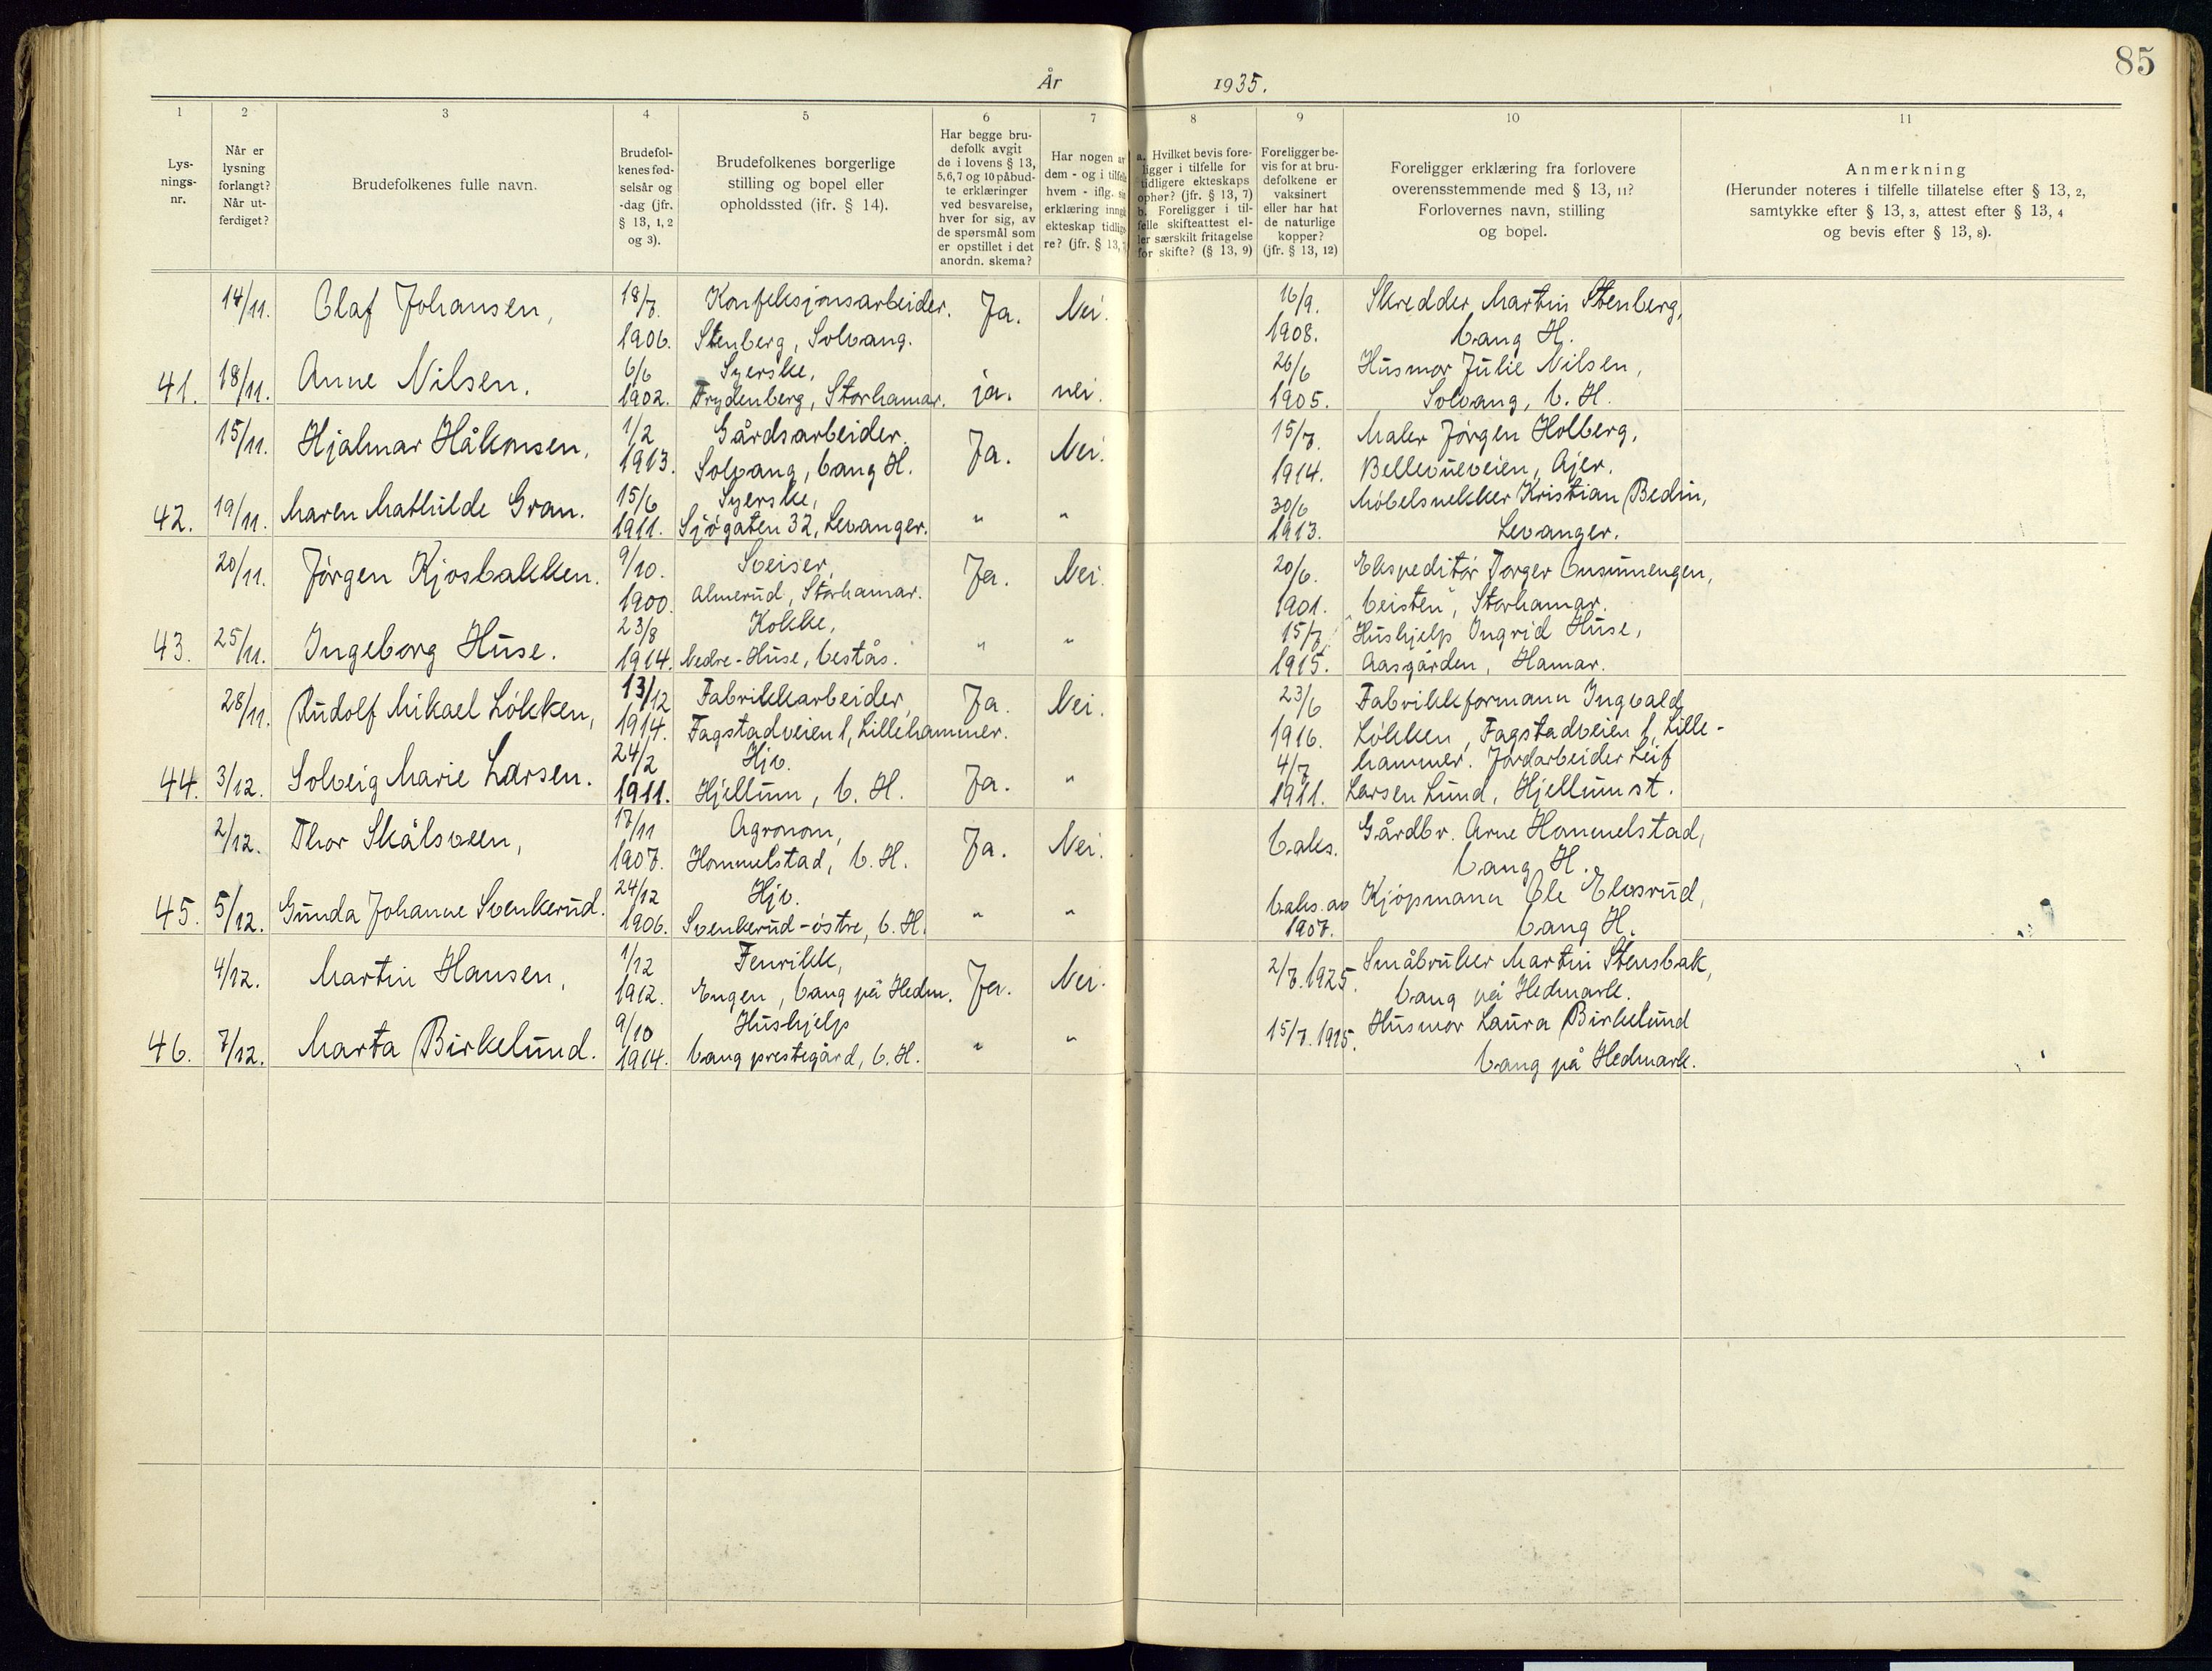 85
År 1935.
1 2 3 4 5 6 7 8 9 10 11
Lys-
nings-
nr.
Når er
lysning
forlangt?
Når ut-
ferdiget?
Brudefolkenes fulle navn.
Brudefol-
kenes fød-
selsår og
-dag (jfr.
§ 13, 1, 2
og 3).
Brudefolkenes borgerlige
stilling og bopel eller
opholdssted (jfr. § 14).
Har begge bru-
defolk avgit
de i lovens § 13,
5, 6, 7 og 10 påbud-
te erklæringer
ved besvarelse,
hver for sig, av
de spørsmål som
er opstillet i det
anordn. skema?
Har nogen av
dem - og i tilfelle
hvem - iflg. sin
erklæring inngåt
ekteskap tidlige-
re? (jfr. § 13,
a. Hvilket bevis fore-
ligger i tilfelle for
tidligere ekteskaps
ophør? (jfr. § 13, 7)
b. Foreligger i til-
felle skifteattest el-
ler særskilt fritagelse
for skifte? (§ 13, 9)
Foreligger be-
vis for at bru-
defolkene er
vaksinert
eller har hat
de naturlige
kopper?
(jfr. § 13, 12)
Foreligger erklæring fra forlovere
overensstemmende med § 13, 11?
Forlovernes navn, stilling
og bopel.
Anmerkning
(Herunder noteres i tilfelle tillatelse efter § 13, 2,
samtykke efter § 13, 3, attest efter § 13, 4
og bevis efter § 13, 8).
14/11. Olaf Johansen, 18/7. Konfeksjonsarbeider. Ja. Nei. 16/9. Skredder Martin Stenberg,
1906. Stenberg, Solvang. 1908. Vang H.
41. 18/11. Anne Nilsen. 6/6 Syerske, 26/6 Husmor Julie Nilsen,
1902. Frydenberg, Storhamar. ja. nei. 1905. Solvang, V. H.
15/11. Hjalmar Håkonsen, 1/2 Gårdsarbeider. Ja. Nei. 15/7. Maler Jörgen Holberg,
1913. Solvang, Vang H. 1914. Bellevueveien, Ajer.
42. 19/11. Maren Mathilde Gran. 15/6 Syerske, 30/6 Möbelsnekker Kristian Bedin,
1911. Sjögaten 32, Levanger. " " 1913. Levanger.
20/11. Jörgen Kjosbakken. 9/10. Sveiser, Ja. Nei. 20/6. Ekspeditör Torger Unsumengen,
1900. Almerud, Storhamar. 1901. Veisten, Storhamar.
43. 25/11. Ingeborg Huse. 23/8 Kokke, " " 15/7. Hushjelp Ingrid Huse,
1914. Nedre-Huse, Vestås. 1915. Aasgården, Hamar.
28/11. Rudolf Mikael Lökken, 13/12 Fabrikkarbeider, Ja. Nei. 23/6 Fabrikkformann Ingvald
1914. Fagstadveien 1, Lillehammer. 1916. Lökken, Fagstadveien 1, Lille-
44. 3/12. Solveig Marie Larsen. 24/2 Hjv. 4/7 hammer. Jordarbeider Leif
1911. Hjellum, V. H. Ja. " 1911. Larsen Lund, Hjellum st.
2/12. Thor Skålsveen, 17/11 Agronom, Ja. Nei. Vaks. Gårdbr. Arne Hommelstad,
1907. Hommelstad, V. H. Vang H.
45. 5/12. Gunda Johanne Svenkerud. 24/12 Hjv. " " Vaks. av Kjöpmann Ole Elvsrud,
1906. Svenkerud-östre, V. H. 1907. Vang H.
4/12. Martin Hansen, 1/12 Fenrikk, Ja. Nei. 2/7. 1925. Småbruker Martin Stensbak,
1912. Engen, Vang på Hedm. Vang på Hedmark.
46. 7/12. Marta Birkelund. 9/10 Hushjelp " " 15/7. 1915. Husmor Laura Birkelund
1914. Vang prestegård, V. H. Vang på Hedmark.